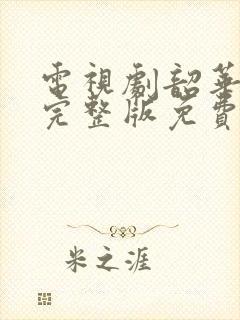 電視劇韶華
完整版免費
米之涯